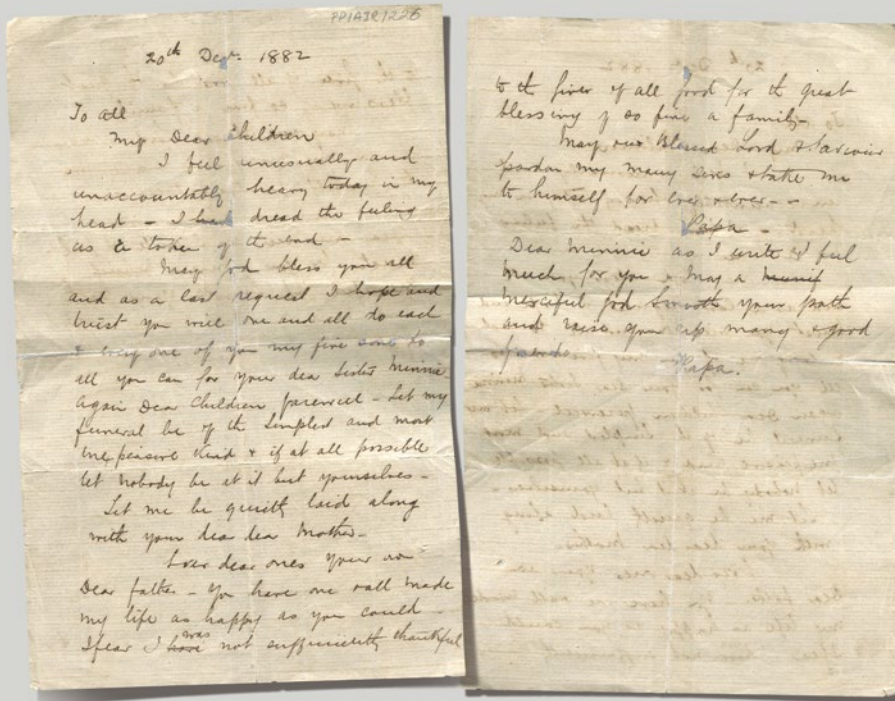 PP/AIR/226
20th Decr. 1882
To all
My Dear Children
I feel unusually and
unaccountably heavy today in my
head – I dread the feeling
as a token of the end –
May God bless you all
and as a last request I hope and
trust you will one and all do each
& every one of you my five sons do
all you can for your dear Sister Minnie –
again Dear Children farewell – Let my
funeral be of the Simplest and most
inexpensive kind & if at all possible
let nobody be at it but yourselves –
Let me be quietly laid along
with your dear dear Mother –
Ever dear ones your own
Dear father – You have one & all made
my life as happy as you could –
I fear I have was not sufficiently thankful
to the giver of all good for the great
blessing of so fine a family –
May our Blessed Lord & Saviour
pardon my many sins & take me
to himself for ever & ever – –
Papa –
Dear Minnie as I write I feel
much for you & may a
Merciful God Smooth your path
and raise you up many & good
friends
Papa.